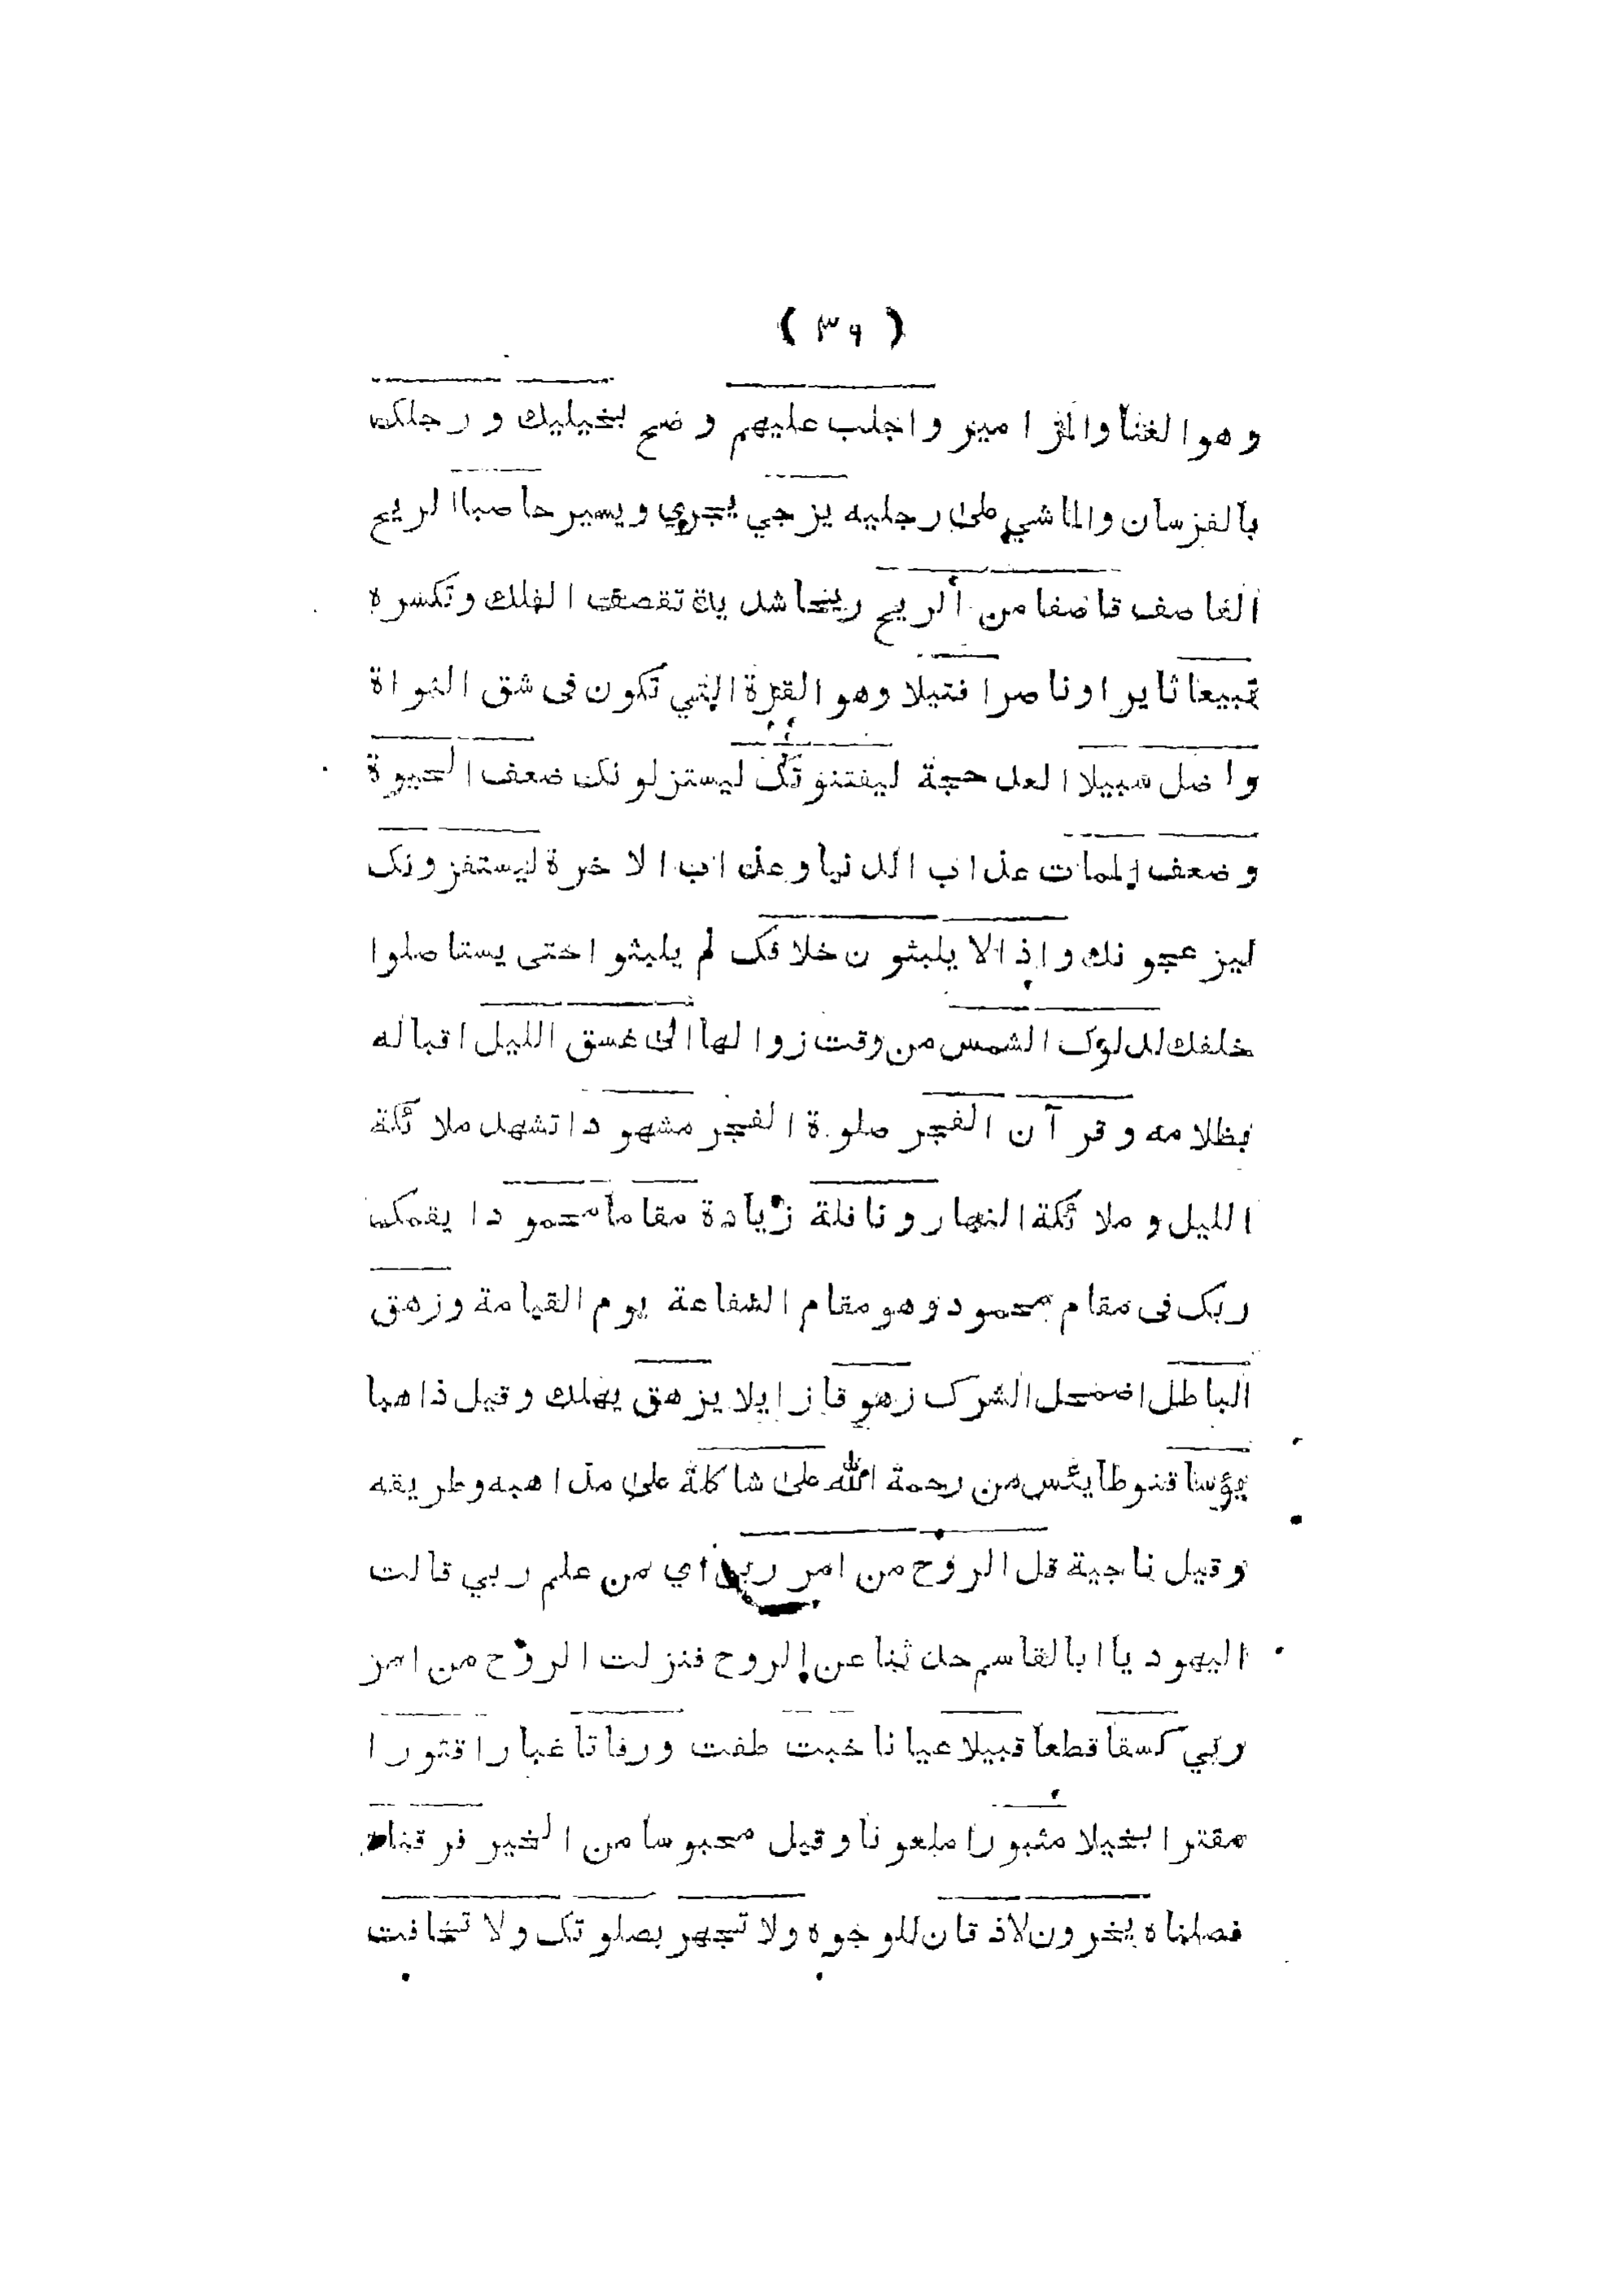 ( ٣٩ )
وهو الغنا والمزامير واجلب عليهم وضح بخيليك ورجلك
بالفرسان والماشي على رجليه يزجي يجري ويسير حاصبا الريح
العاصف قاصفا من الريح ريحا شديدة تقصف الفلك وتكسره
تبيعا ثايرا وناصرا فتيلا وهو القشرة التي تكون فى شق النواة
واضل سبيلا ابعد حجة ليفتنونك ليستزلونك ضعف الحيوة
وضعف الممات عذاب الدنيا وعذاب الاخرة ليستفزونك
ليزعجونك واذا لا يلبثون خلافك لم يلبثوا حتى يستاصلوا
خلفك لدلوك الشمس من وقت زوالها الى غسق الليل اقباله
بظلامه وقرآن الفجر صلوة الفجر مشهودا تشهد ملائكة
الليل وملائكة النهار ونافلة زيادة مقاما محمودا يقمك
ربك فى مقام محمود وهو مقام الشفاعة يوم القيامة وزهق
الباطل اضمحل الشرك زهوقا زايلا يزهق يهلك وقيل ذاهبا
يؤسا قنوطا يئس من رحمة الله على شاكلة على مذاهبه وطريقه
وقيل ناجية قل الروح من امر ربى اي من علم ربي قالت
اليهود يا ابا القاسم حدثنا عن الروح فنزلت الروح من امر
ربي كسفا قطعا قبيلا عيانا خبت طفت ورفاتا غبارا قتورا
مقترا بخيلا مثبورا ملعونا وقيل محبوسا من الخير فرقناه
فصلناه يخرون لاذقان للوجوه ولا تجهر بصلوتك ولا تخافت